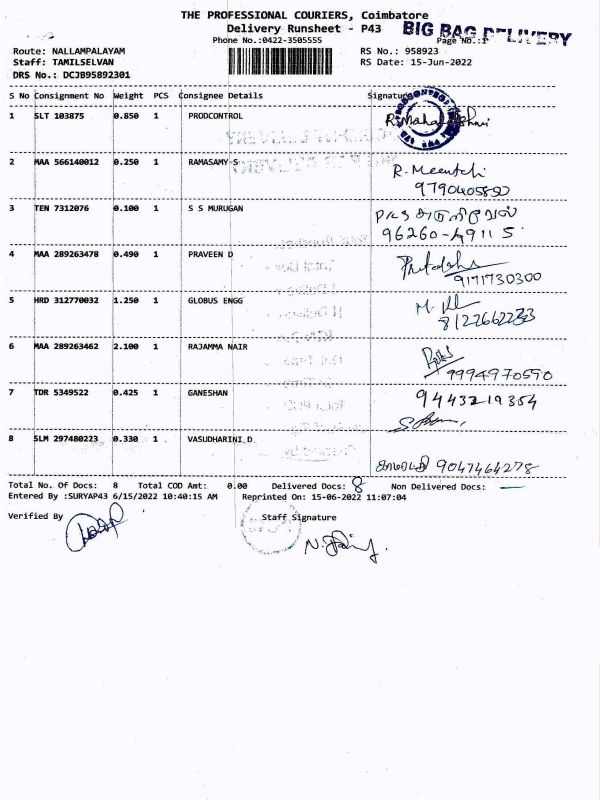 THE PROFESSIONAL COURIERS, Coimbatore
Delivery Runsheet - P43
BIG BAG DELIVERY
Phone No.:0422-3505555
Page No.:1
Route: NALLAMPALAYAM
RS No.: 958923
Staff: TAMILSELVAN
RS Date: 15-Jun-2022
DRS No.: DCJB95892301
S No Consignment No Weight PCS Consignee Details Signature
1 SLT 103875 0.850 1 PRODCONTROL
2 MAA 566140012 0.250 1 RAMASAMY S R. Meenatchi
3 TEN 7312076 0.100 1 S S MURUGAN
96260-49115
4 MAA 289263478 0.490 1 PRAVEEN D
9171730300
5 HRD 312770032 1.250 1 GLOBUS ENGG
6 MAA 289263462 2.100 1 RAJAMMA NAIR
9994970590
7 TDR 5349522 0.425 1 GANESHAN 9443219354
8 SLM 297480223 0.330 1 VASUDHARINI.D
9047464278
Total No. Of Docs: 8 Total COD Amt: 0.00 Delivered Docs: 8 Non Delivered Docs: —
Entered By :SURYAP43 6/15/2022 10:40:15 AM Reprinted On: 15-06-2022 11:07:04
Verified By Staff Signature